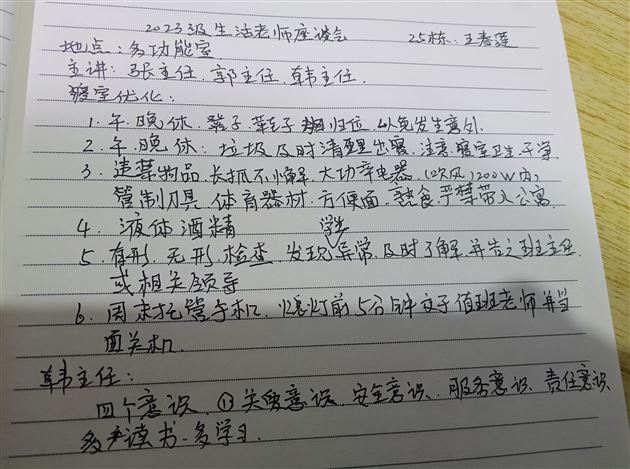 2023级生活老师座谈会 25栋:王春莲
地点:多功能室
主讲:张主任、郭主任、韩主任.
寝室优化:
1. 午.晚休.凳子.鞋子归位,以免发生意外.
2. 午.晚休:垃圾及时清理出寝.注意寝室卫生.干净
3. 违禁物品,长抓不懈.大功率电器.(吹风)1200W内,
管制刀具.体育器材.方便面、熟食严禁带入公寓.
4. 液体酒精
5. 有形.无形.检查.发现学生异常,及时了解并告之班主任
或相关领导
6. 周末托管手机.熄灯前5分钟交于值班老师并当
面关机.
韩主任:
四个意识.① 关爱意识.安全意识、服务意识.责任意识
多读书.多学习.